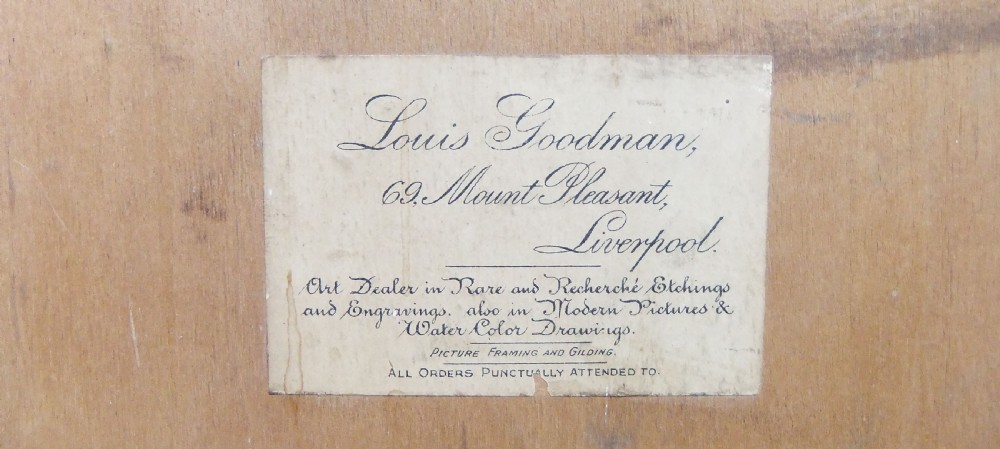 Louis Goodman,
69. Mount Pleasant,
Liverpool.
Art Dealer in Rare and Recherché Etchings
and Engravings. also in Modern Pictures &
Water Color Drawings.
PICTURE FRAMING AND GILDING.
ALL ORDERS PUNCTUALLY ATTENDED TO.